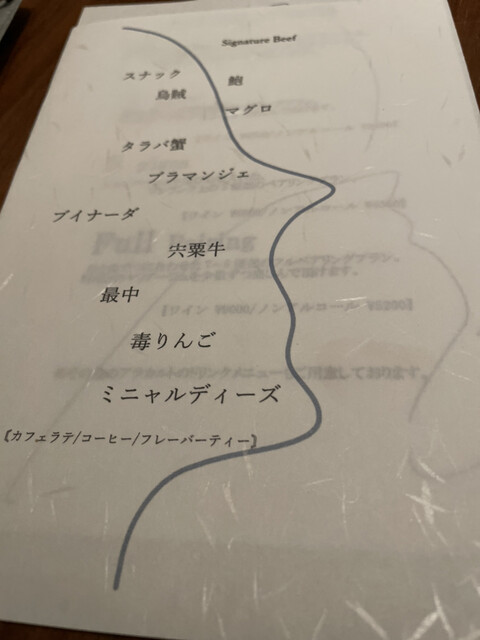 Signature Beef
スナック
鮑
烏賊
マグロ
タラバ蟹
ブラマンジェ
ブイナーダ
宍粟牛
最中
毒りんご
ミニャルディーズ
〘カフェラテ/コーヒー/フレーバーティー〙
Full Pairing